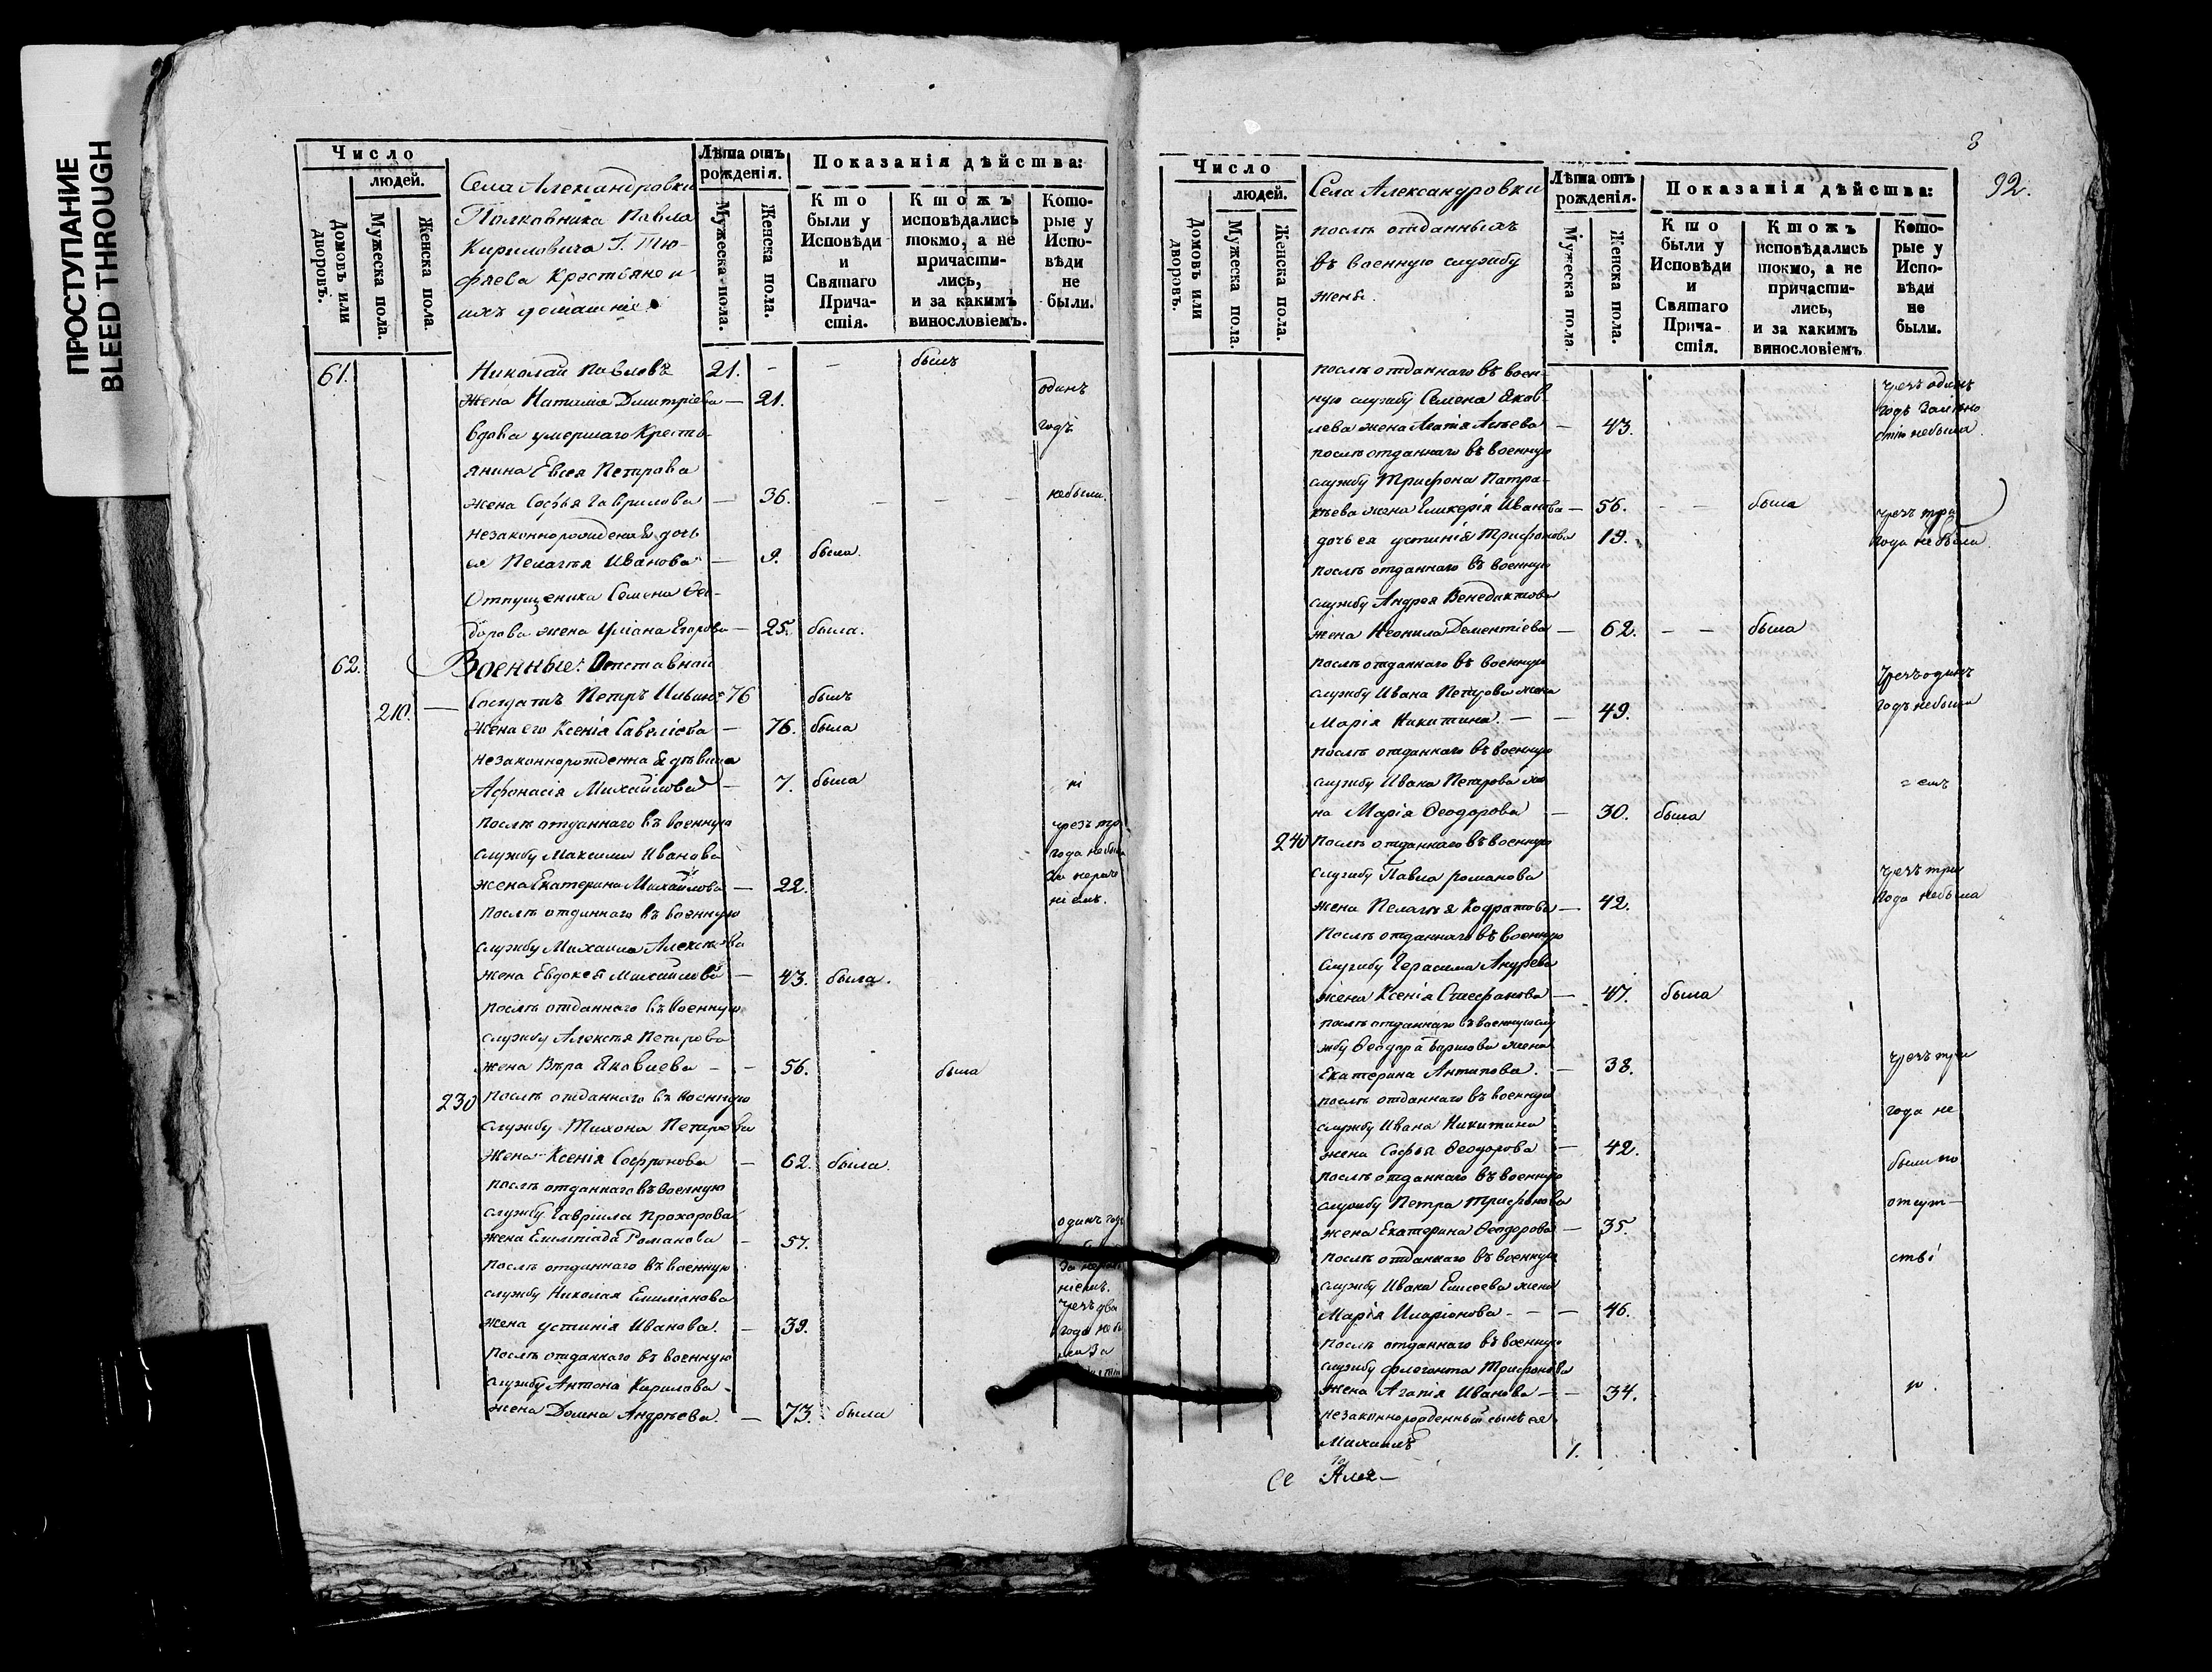 ПРОСТУПАНИЕ
BLEED THROUGH
Число
людей.
Домовъ или дворовъ.
Мужеска пола.
Женска пола.
Села Александровки
Полковника Павла
Кириловича Г. Тю-
фяева Крестьяне и
ихъ домашніе
Лѣта отъ рожденія.
Мужеска пола.
Женска пола.
Показанія дѣйства:
Кто были у Исповѣди и Святаго Прича-стія.
Ктожъ исповѣдались токмо, а не причасти-лись, и за какимъ винословіемъ.
Кото-рые у Испо-вѣди не были.
61. Николай Павловъ 21. - - былъ
Жена Наталия Дмитріева — 21. одинъ
вдова умершаго Кресть- годъ
янина Евсея Петрова
жена Софья Гаврилова — 36. - - - небыли.
незаконнорожденная дочь
ея Пелагѣя Иванова — 9. была.
Отпущеника Семена Фео-
дорова жена Уліана Егорова — 25. была.
62. Военные: Отставной
210. — Солдатъ Петръ Ильинъ 76 былъ
Жена его Ксенія Савеліева — 76. была
незаконнорожденная дѣвица
Афонасія Михайлова — 7. была
послѣ отданнаго въ военную чрезъ три
службу Максима Иванова года небыла
жена Екатерина Михайлова — 22. За нераче
послѣ отданнаго въ военную ніемъ.
службу Михаила Алексѣева
жена Евдокея Михайлова — 43. была.
послѣ отданнаго въ военную
службу Алексѣя Петрова
жена Вѣра Яковлева — - 56. была
230 послѣ отданнаго въ военную
службу Тихона Петрова
Жена Ксенія Софронова — 62. была.
послѣ отданнаго въ военную
службу Гавріила Прохорова одинъ годъ
жена Романова — 57.
послѣ отданнаго въ военную За
службу Николая Емиліанова ніемъ.
жена устинія Иванова. — 39. чрезъ два года
послѣ отданнаго въ военную За
службу Антона Кирилова
жена Домна Андрѣева. — 73. была
8
92.
Число
людей.
Домовъ или дворовъ.
Мужеска пола.
Женска пола.
Села Александровки
послѣ отданныхъ
въ военную службу
жены.
Лѣта отъ рожденія.
Мужеска пола.
Женска пола.
Показанія дѣйства:
Кто были у Исповѣди и Святаго Прича-стія.
Ктожъ исповѣдались токмо, а не причасти-лись, и за какимъ винословіемъ
Кото-рые у Испо-вѣди не были.
послѣ отданнаго въ воен- чрезъ одинъ
ную службу Семена Яков- годъ
лева жена Агапія — 43. небыла
послѣ отданнаго въ военную
службу Трифона Патри-
кѣева жена Гликерія Иванова — 56. - - была чрезъ три
дочь ея устинія Трифонова 19. года небыла
послѣ отданнаго въ военную
службу Андрея Венедиктова
жена Неонила Дементіева — 62. - - была
послѣ отданнаго въ военную чрезъ одинъ
службу Ивана Петрова жена годъ небыла
Марія Никитина. — — 49.
послѣ отданнаго въ военную
службу Ивана Петрова же = емъ
на Марія Феодорова — 30. была
240 послѣ отданнаго въ военную
службу Павла Романова чрезъ три
жена Пелагѣя Кодратова — 42. года небыла
Послѣ отданнаго въ военную
службу Герасима Андрѣева
жена Ксенія Стефанова — 47. была
послѣ отданнаго въ военную слу
жбу Феодора жена
Екатерина Антипова. — 38. чрезъ три
послѣ отданнаго въ военную года не
службу Ивана Никитина
жена Софья Феодорова — 42. были по
послѣ отданнаго въ военную
службу Петра Трифонова отсут-
жена Екатерина Феодорова — 35.
послѣ отданнаго въ военную стві
службу Ивана Елисеева жена
Марія Иларіонова. — — 46.
послѣ отданнаго въ военную
службу Флегонта Трифонова
жена Агапія Иванова — - 34. ю.
незаконнорожденный сынъ ея
Михаилъ 1.
Се Алек-